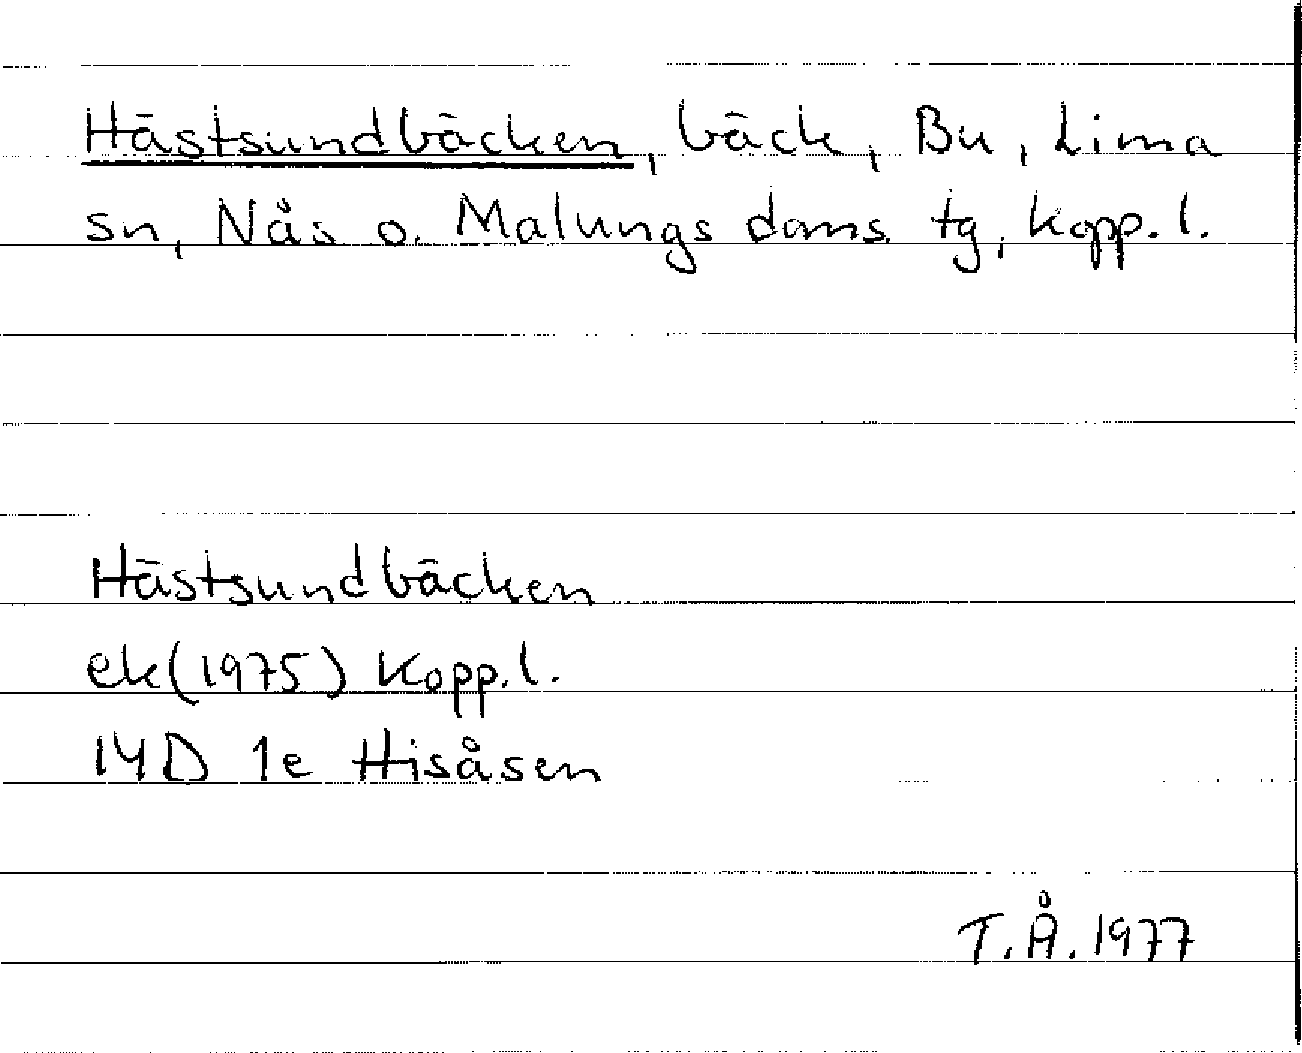 Hästsundbäcken, bäck, Bu, Lima
sn, Nås o. Malungs doms. tg, Kopp. l.
Hästsundbäcken
ek (1975) Kopp. l.
14D 1e Hisåsen
T. Å. 1977